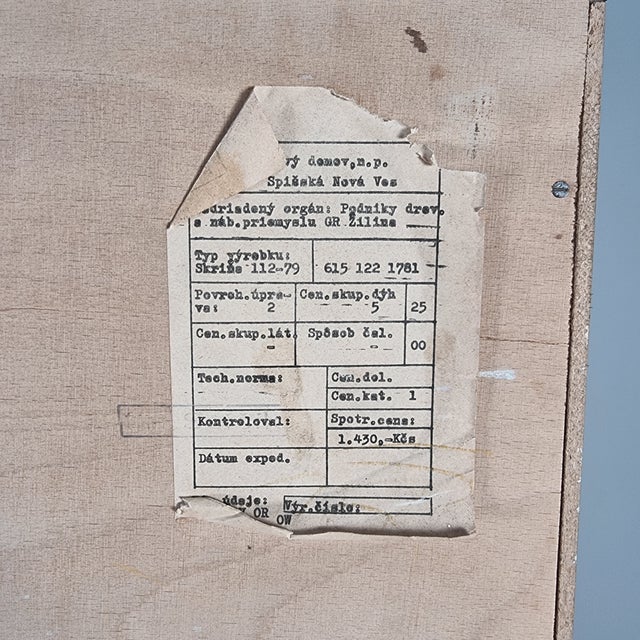 vý domov,n.p.
Spišská Nová Ves
adriadený orgán: Podniky drev.
a náb.priemyslu GR Žilina
Typ výrobku:
Skriňa 112-79 615 122 1781
Povrch.úpra- Cen.skup.dýh
va: 2 5 25
Cen.skup.lát. Spôsob čal.
- - - 00
Tech.norma: Cen.dol.
Cen.kat. 1
Kontroloval: Spotr.cena:
1.430,-Kčs
Dátum exped.
údaje: Výr.číslo:
OR OW